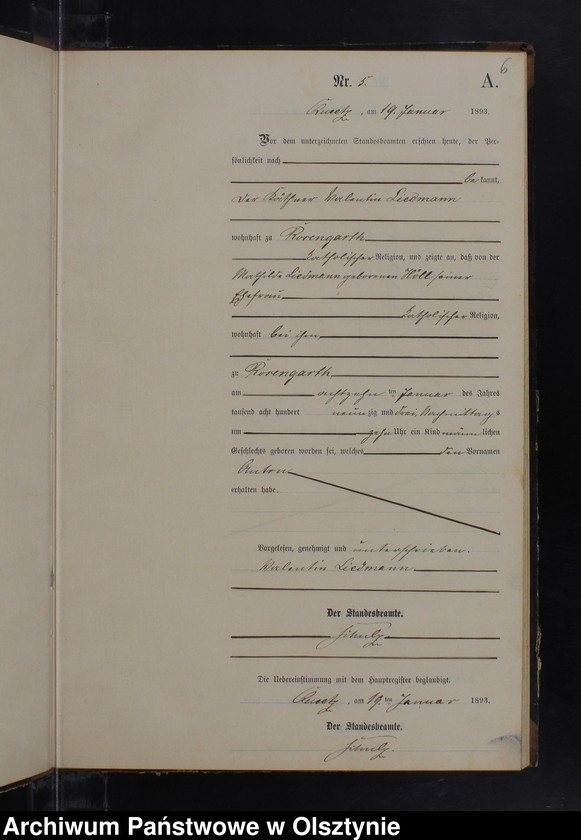 6
Nr. 5.
A.
Queetz, am 19. Januar 1893.
Vor dem unterzeichneten Standesbeamten erschien heute, der Per-
sönlichkeit nach
be kannt,
der Käthner Valentin Liedmann
wohnhaft zu Rosengarth
katholischer Religion, und zeigte an, daß von der
Mathilde Liedmann geborenen Höll seiner
Ehefrau
katholischer Religion,
wohnhaft bei ihm
zu Rosengarth
am achtzehn ten Januar des Jahres
tausend acht hundert neun zig und drei, Nachmittag s
um zehn Uhr ein Kind männ lichen
Geschlechts geboren worden sei, welches den Vornamen
Anton
erhalten habe.
Vorgelesen, genehmigt und unterschrieben.
Valentin Liedmann
Der Standesbeamte.
Schulz
Die Uebereinstimmung mit dem Hauptregister beglaubigt.
Queetz, am 19. ten Januar 1893.
Der Standesbeamte.
Schulz.
Archiwum Państwowe w Olsztynie